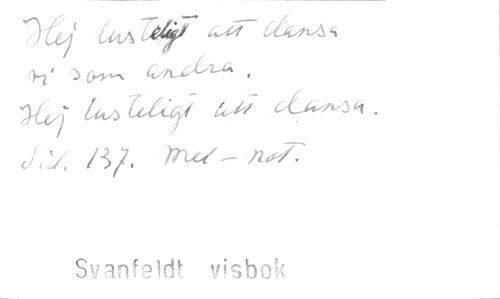 Hej lusteligt att dansa
vi som andra.
Hej lusteligt att dansa.
Sid. 137. Mel-not.
Svanfeldt visbok